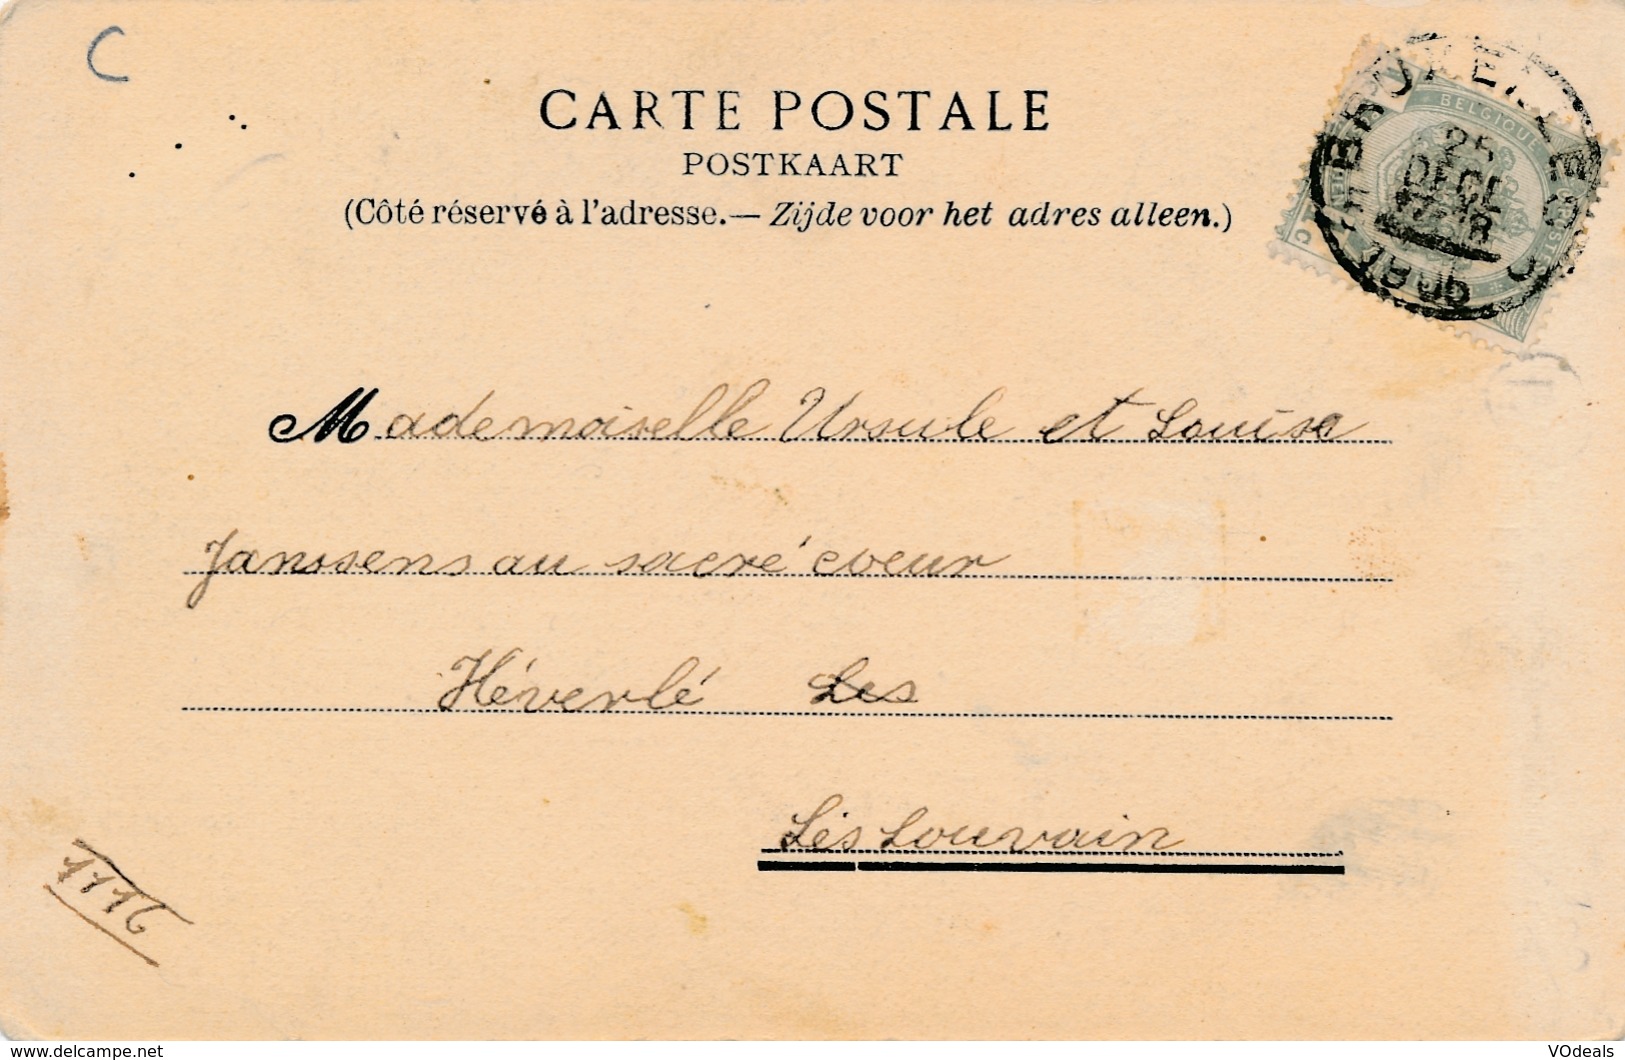 C
CARTE POSTALE
POSTKAART
(Côté réservé à l'adresse.— Zijde voor het adres alleen.)
BRUXELLES
BELGIQUE
25
DECE
Mademoiselle Ursule et Louisa
Janssens au sacré coeur
Héverlé Les
Lès Louvain
1116
www.delcampe.net
VOdeals